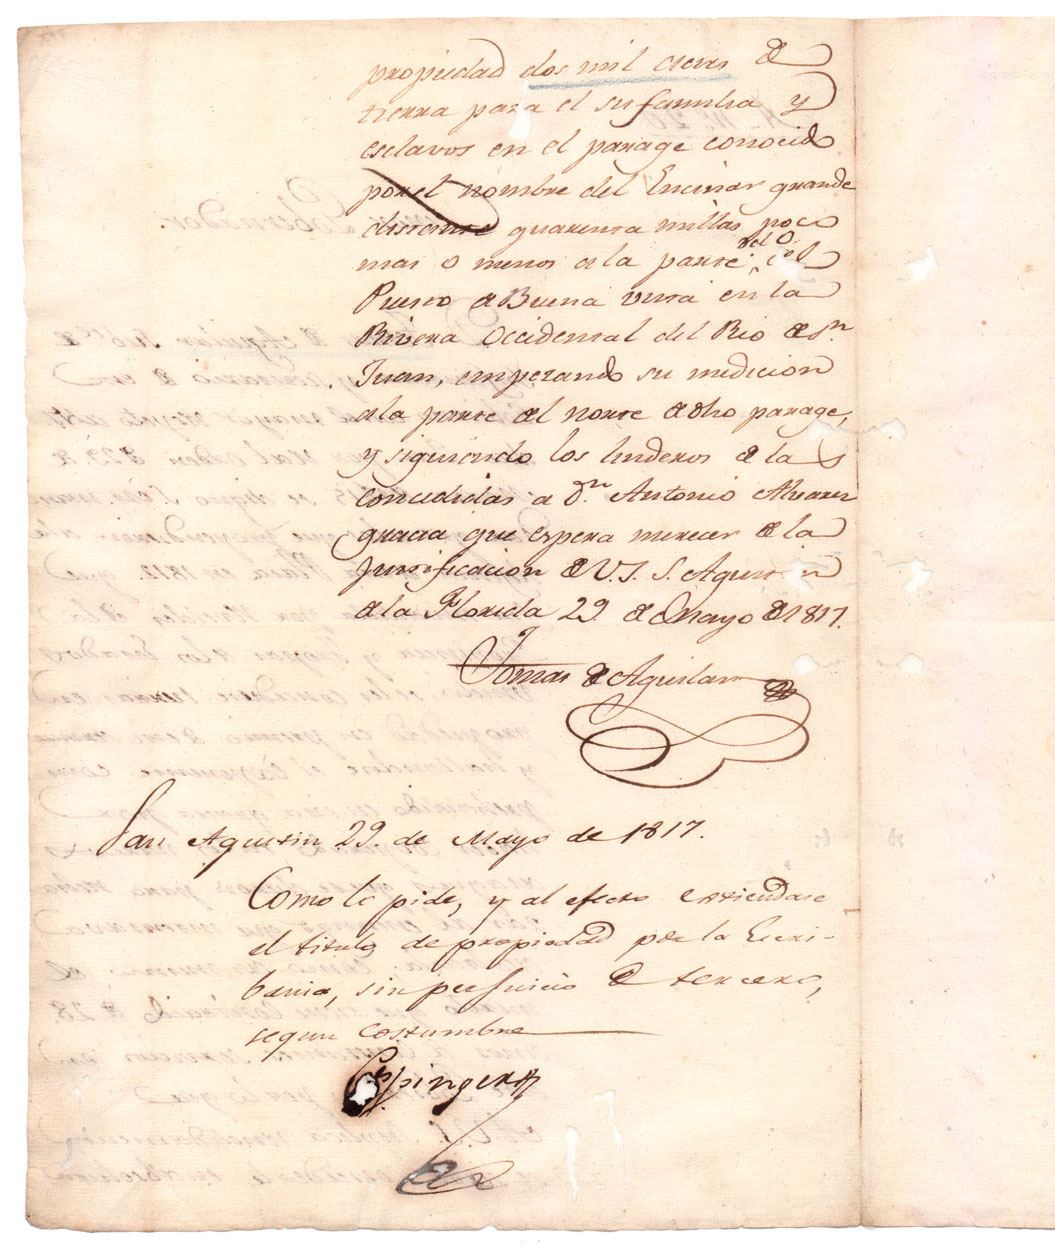 propiedad dos mil acres de
tierra para el su familia y
esclavos en el parage conocido
por el nombre del Encinar grande
distante quarenta millas poco
mas o menos a la parte del O. del
Puerto de Buena vista en la
Rivera Occidental del Rio de Sn
Juan, empezando su medicion
a la parte del norte de dho parage,
y siguiendo los linderos de las
concedidas a Dn Antonio Alvarez
gracia que espera merecer de la
justificacion de V.S. S. Agustin
de la Florida 29 de Mayo de 1817.
Tomas de Aguilar
San Agustin 29. de Mayo de 1817.
Como lo pide, y al efecto estiendase
el titulo de propiedad por la Escri-
bania, sin perjuicio de tercero,
segun costumbre